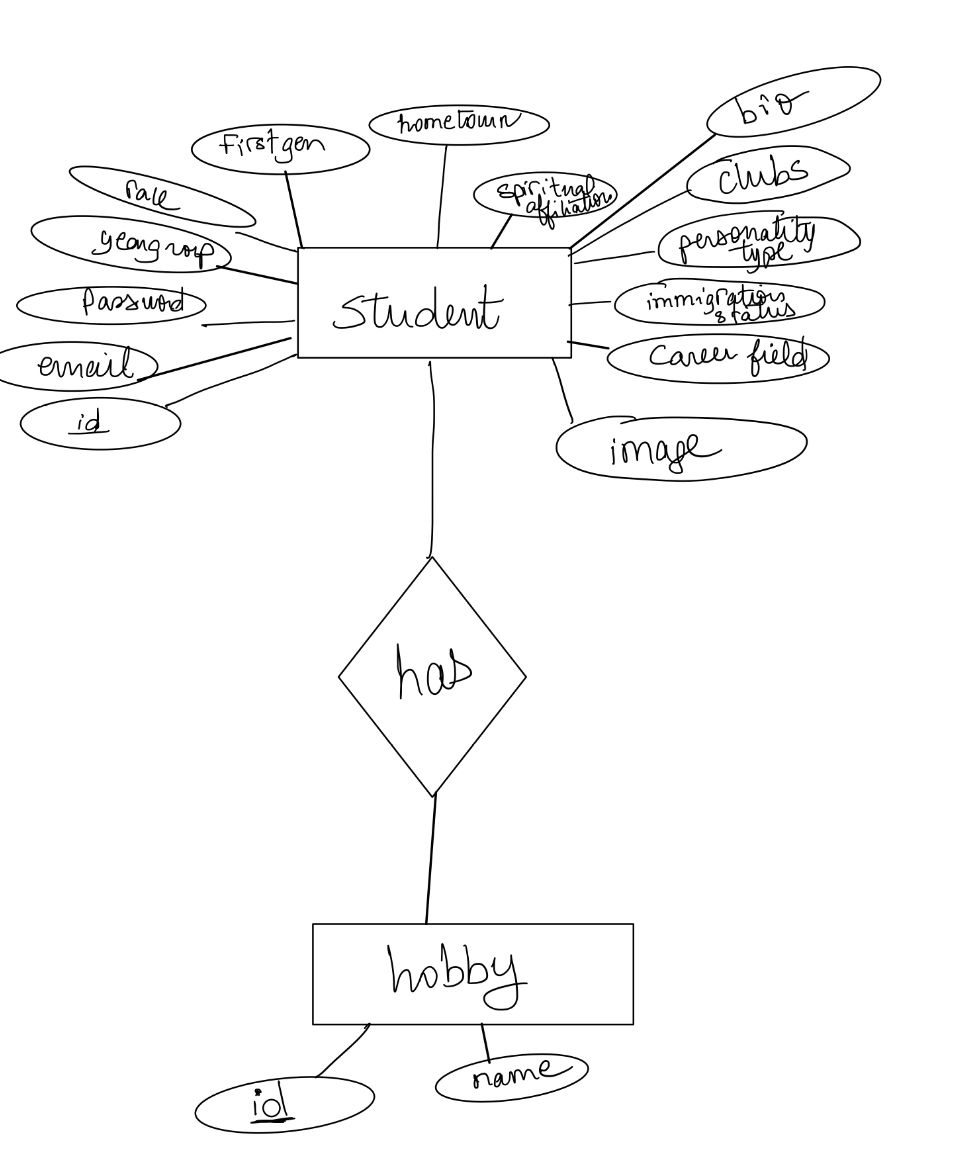 bio
hometown
firstgen
clubs
race
spiritual
affiliation
yeargroup
personality
type
password
immigration
status
student
email
career field
id
image
has
hobby
name
id